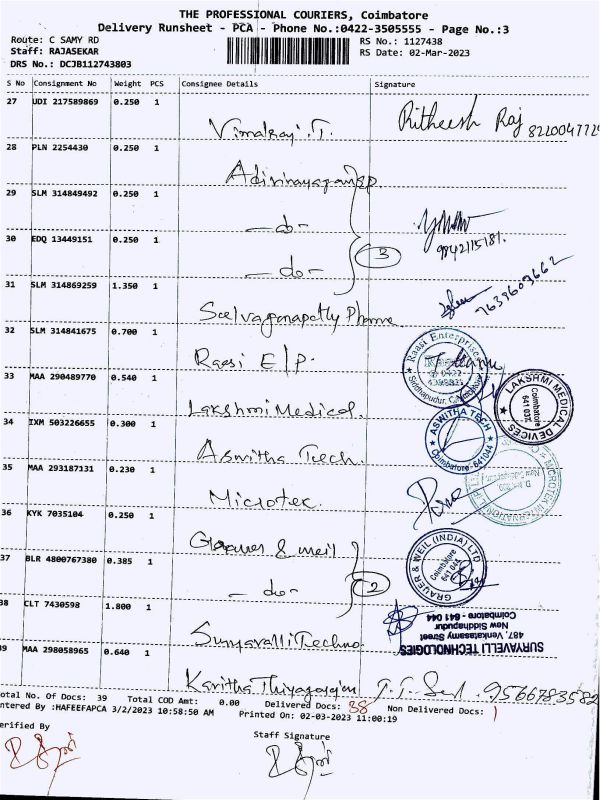 THE PROFESSIONAL COURIERS, Coimbatore
Delivery Runsheet - PCA - Phone No.:0422-3505555 - Page No.:3
Route: C SAMY RD
RS No.: 1127438
Staff: RAJASEKAR
RS Date: 02-Mar-2023
DRS No.: DCJB112743803
S No Consignment No Weight PCS Consignee Details Signature
27 UDI 217589869 0.250 1
Vimalraj .T. Ritheesh Raj
28 PLN 2254430 0.250 1
29 SLM 314849492 0.250 1
-do-
9842115181.
30 EDQ 13449151 0.250 1
-do- 3
31 SLM 314869259 1.350 1
7639603662
Selvaganapathy Pharma
32 SLM 314841675 0.700 1
Raasi E/P. Raasi Enterprises
33 MAA 290489770 0.540 1
Lakshmi Medical. LAKSHMI MEDICAL DEVICES Coimbatore
34 IXM 503226655 0.300 1
Aswitha Tech. ASWITHA TECH Coimbatore-641044
35 MAA 293187131 0.230 1
Microtek
36 KYK 7035104 0.250 1
Grauer & weil GRAUER & WEIL (INDIA) LTD Coimbatore
37 BLR 4800767380 0.385 1
-do- 2
38 CLT 7430598 1.800 1
SURYAVELLI TECHNOLOGIES
487, Venkatasamy Street
New Siddhapudur
Coimbatore - 641 044
39 MAA 298058965 0.640 1
Kavitha Thiyagarajan 9566783582
otal No. Of Docs: 39 Total COD Amt: 0.00 Delivered Docs: 38 Non Delivered Docs: 1
ntered By :HAFEEFAPCA 3/2/2023 10:58:50 AM Printed On: 02-03-2023 11:00:19
erified By Staff Signature